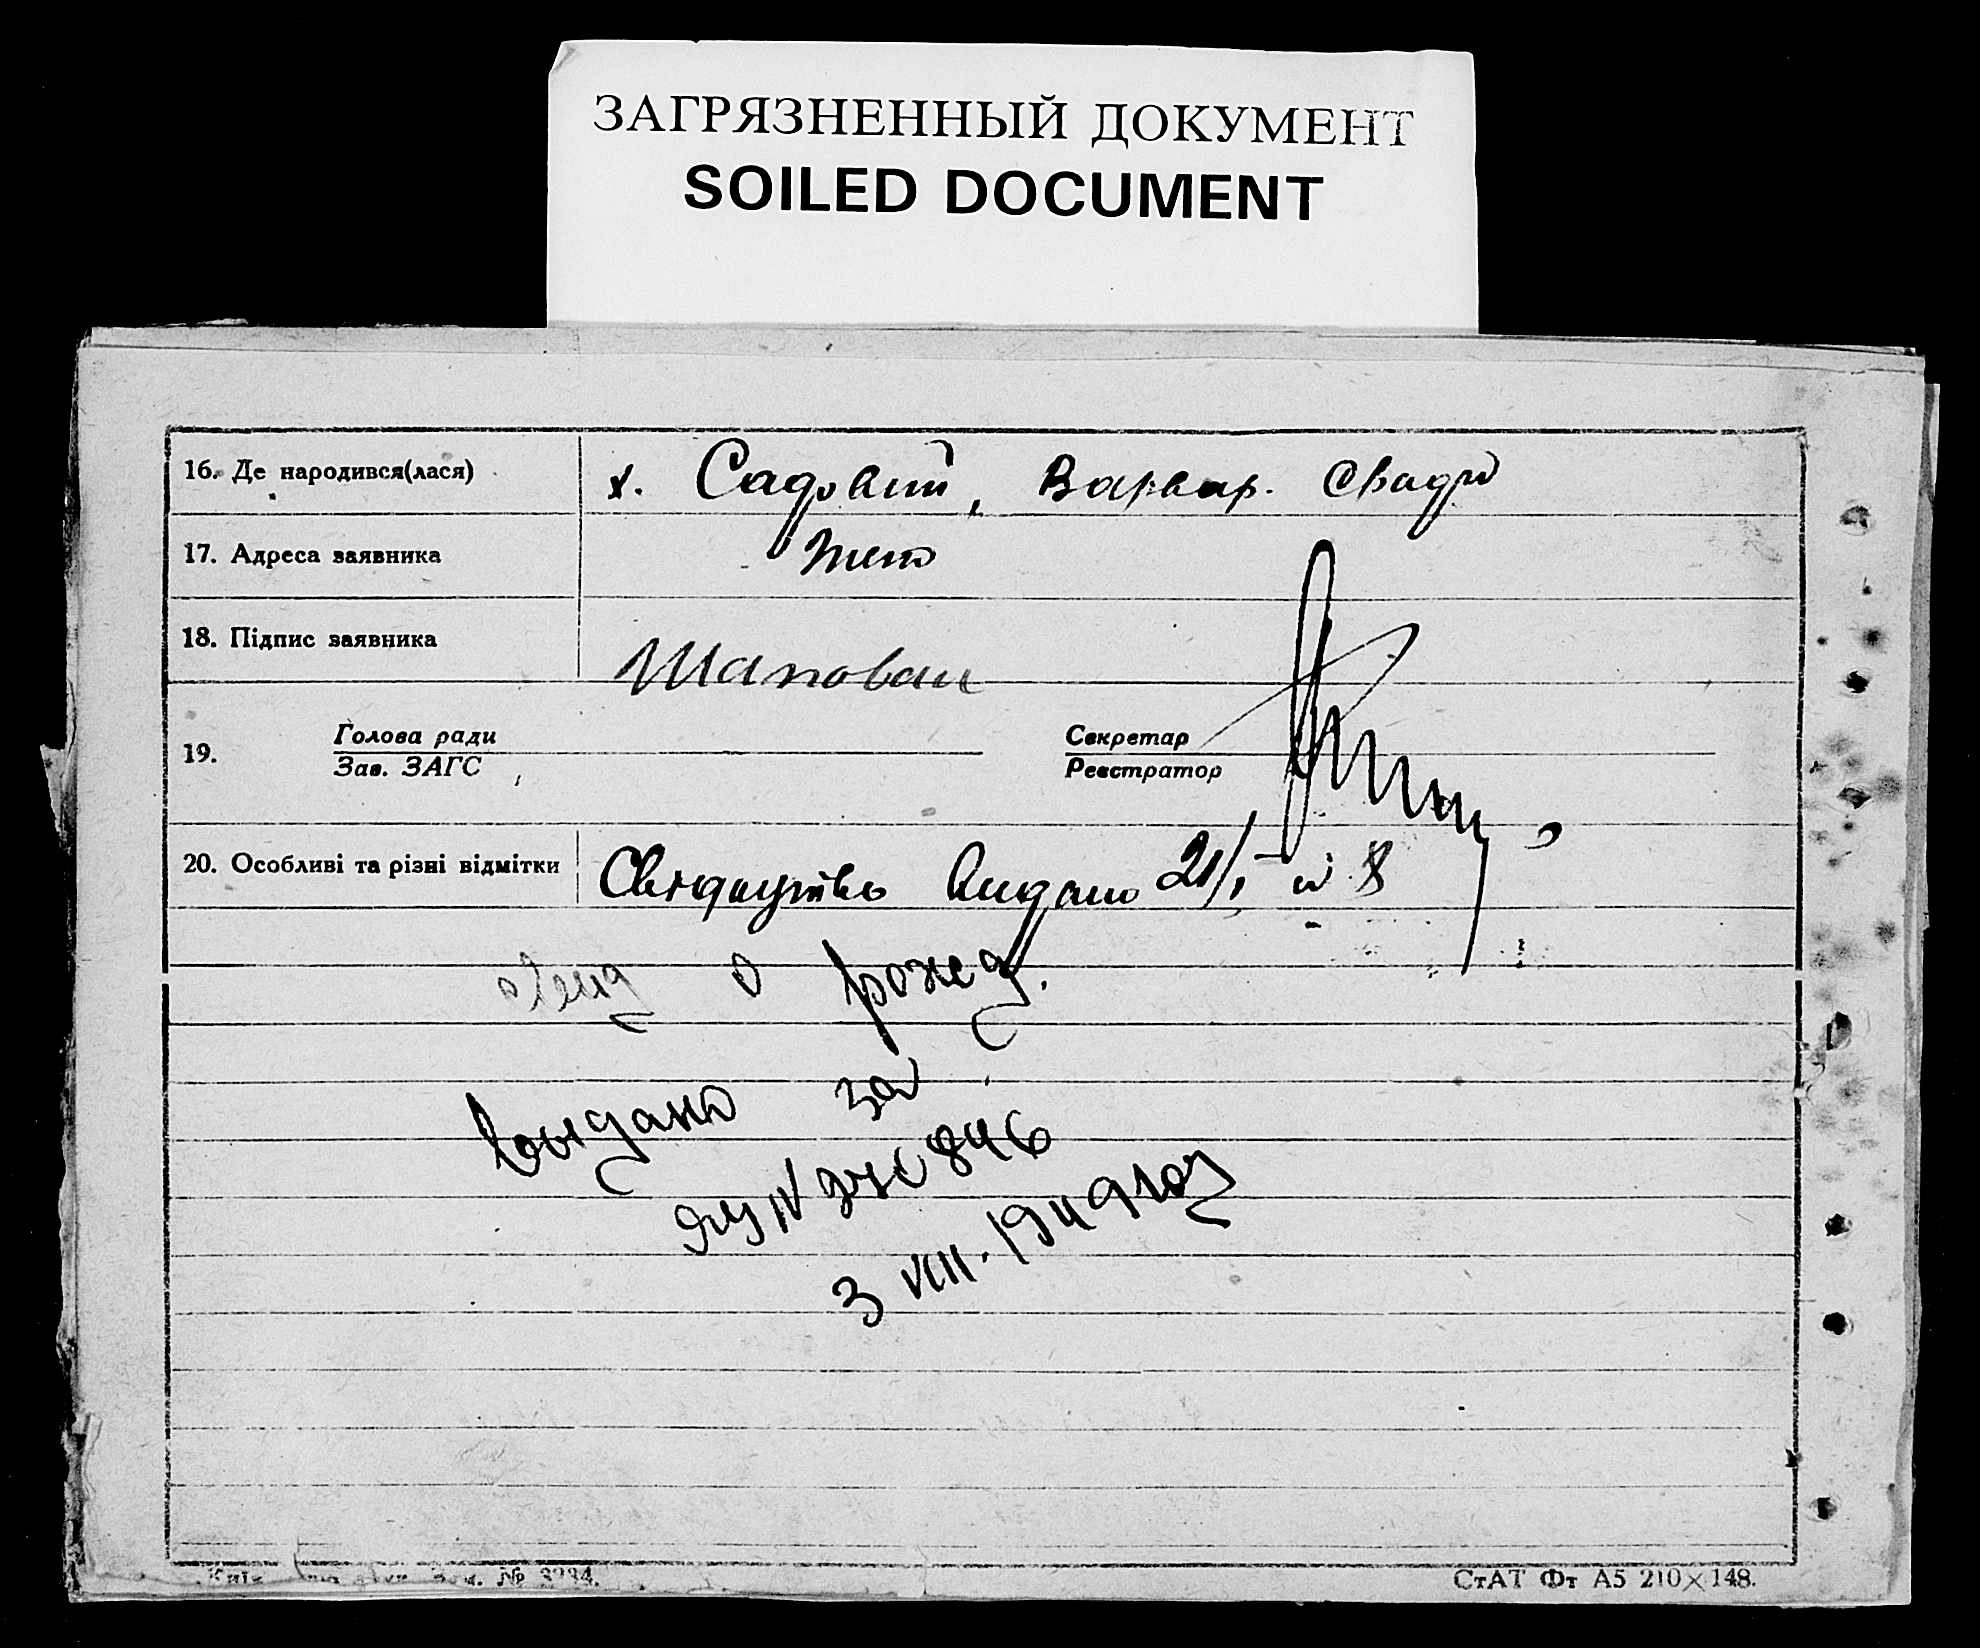 ЗАГРЯЗНЕННЫЙ ДОКУМЕНТ
SOILED DOCUMENT
16. Де народився(лася) х. Садовий, Варвар.
17. Адреса заявника
18. Підпис заявника Шаповал
19. Голова ради Секретар
Зав. ЗАГС Реєстратор
20. Особливі та різні відмітки Свідоцтво видано 21/
о рожд.
выдано за
3 VIII. 1949 год
№ 3234.
СтАТ Фт А5 210×148.